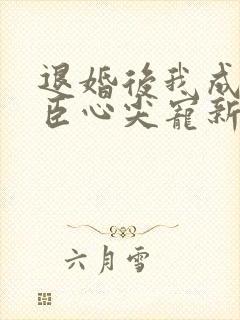 退婚後我成
臣心尖寵新
六月雪